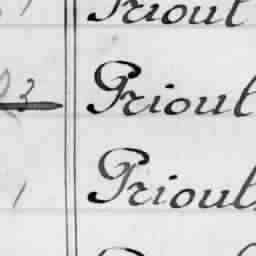 Prioul
23 Prioul
1 Prioul